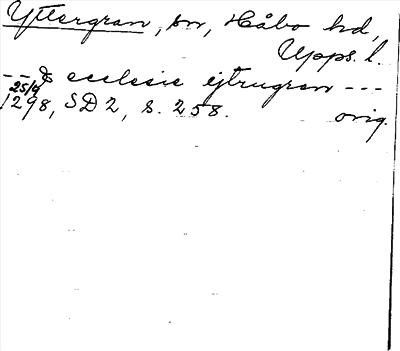 Yttergran, sn, Håbo hd,
Upps. l.
--- & ecclesie ejtrugran ---
25/4
1298, SD 2, s. 258. orig.